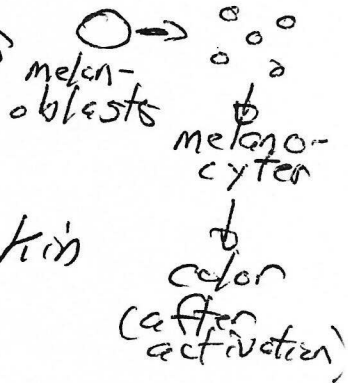 melan-
oblasts
melano-
cyter
kin
color
(after
activation)